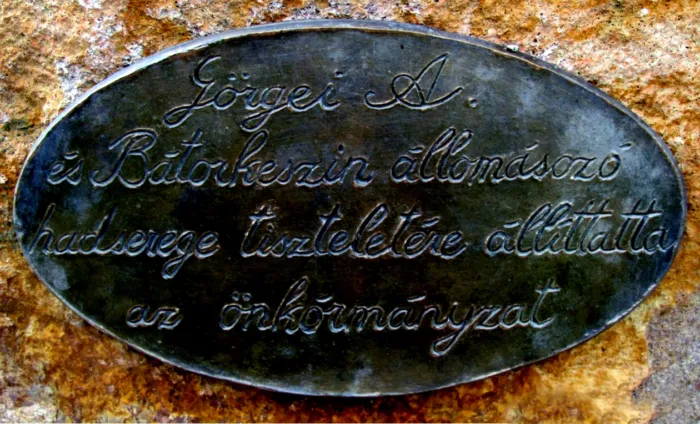 Görgei A.
és Bátorkeszin állomásozó
hadserege tiszteletére állíttatta
az önkórmányzat